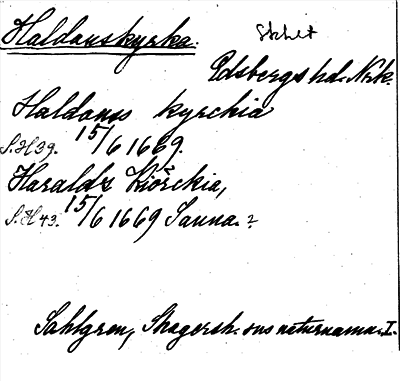 Haldanskyrka. Skht
Edsbergs hd. Nrk.
Haldanss kyrchia
S.H 39. 15/6 1669.
Haralds Kiörckia,
S.H 43. 15/6 1669 Sauna.?
Sahlgren, Skagersh. sns naturnamn. I.